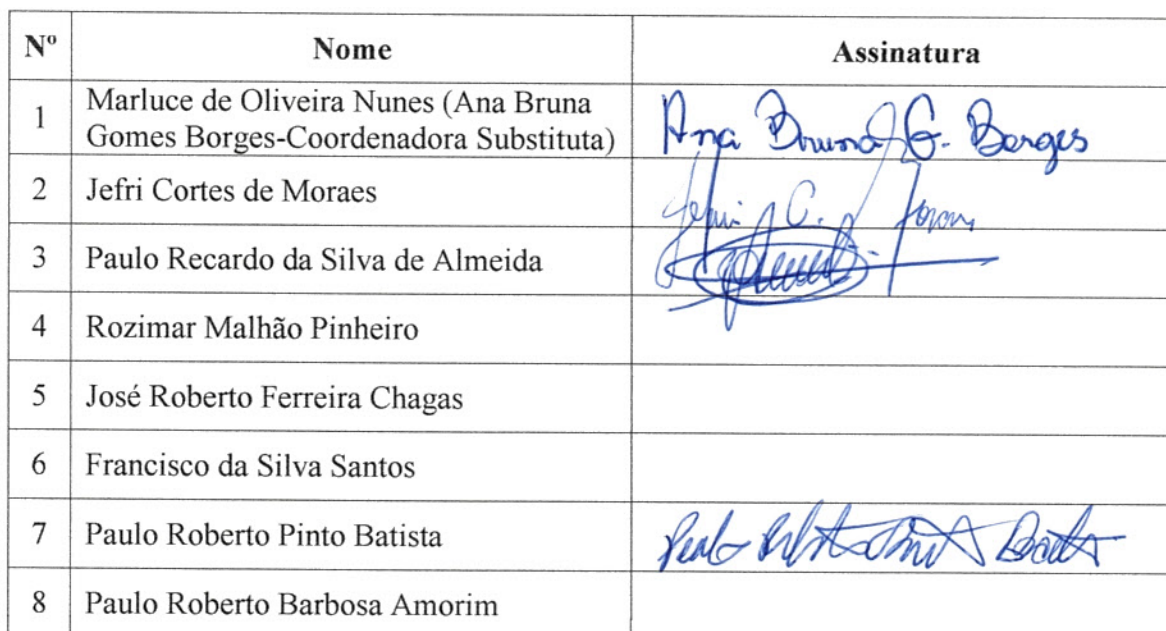 Nº Nome Assinatura
1 Marluce de Oliveira Nunes (Ana Bruna
Gomes Borges-Coordenadora Substituta) Ana Bruna G. Borges
2 Jefri Cortes de Moraes
3 Paulo Recardo da Silva de Almeida
4 Rozimar Malhão Pinheiro
5 José Roberto Ferreira Chagas
6 Francisco da Silva Santos
7 Paulo Roberto Pinto Batista
8 Paulo Roberto Barbosa Amorim